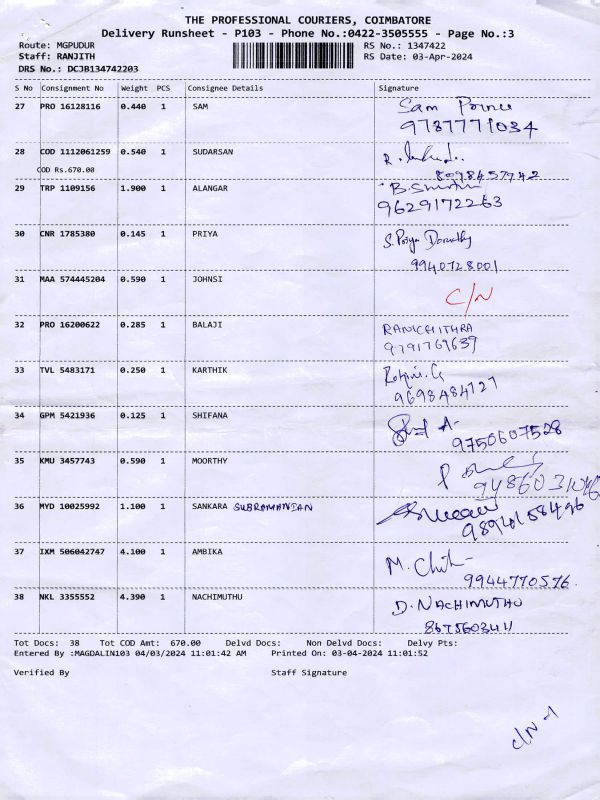 THE PROFESSIONAL COURIERS, COIMBATORE
Delivery Runsheet - P103 - Phone No.:0422-3505555 - Page No.:3
Route: MGPUDUR RS No.: 1347422
Staff: RANJITH RS Date: 03-Apr-2024
DRS No.: DCJB134742203
S No Consignment No Weight PCS Consignee Details Signature
27 PRO 16128116 0.440 1 SAM Sam Prince
9787771034
28 COD 1112061259 0.540 1 SUDARSAN
COD Rs.670.00 8098457742
29 TRP 1109156 1.900 1 ALANGAR
9629172263
30 CNR 1785380 0.145 1 PRIYA S. Priya Dorathy
9940728001
31 MAA 574445204 0.590 1 JOHNSI C/N
32 PRO 16200622 0.285 1 BALAJI RANICHITHRA
9791769639
33 TVL 5483171 0.250 1 KARTHIK
9698484727
34 GPM 5421936 0.125 1 SHIFANA
9750607528
35 KMU 3457743 0.590 1 MOORTHY
36 MYD 10025992 1.100 1 SANKARA SUBRAMANIAN
37 IXM 506042747 4.100 1 AMBIKA
9944770576
38 NKL 3355552 4.390 1 NACHIMUTHU D. NACHIMUTHU
Tot Docs: 38 Tot COD Amt: 670.00 Delvd Docs: Non Delvd Docs: Delvy Pts:
Entered By :MAGDALIN103 04/03/2024 11:01:42 AM Printed On: 03-04-2024 11:01:52
Verified By Staff Signature
C/N -1